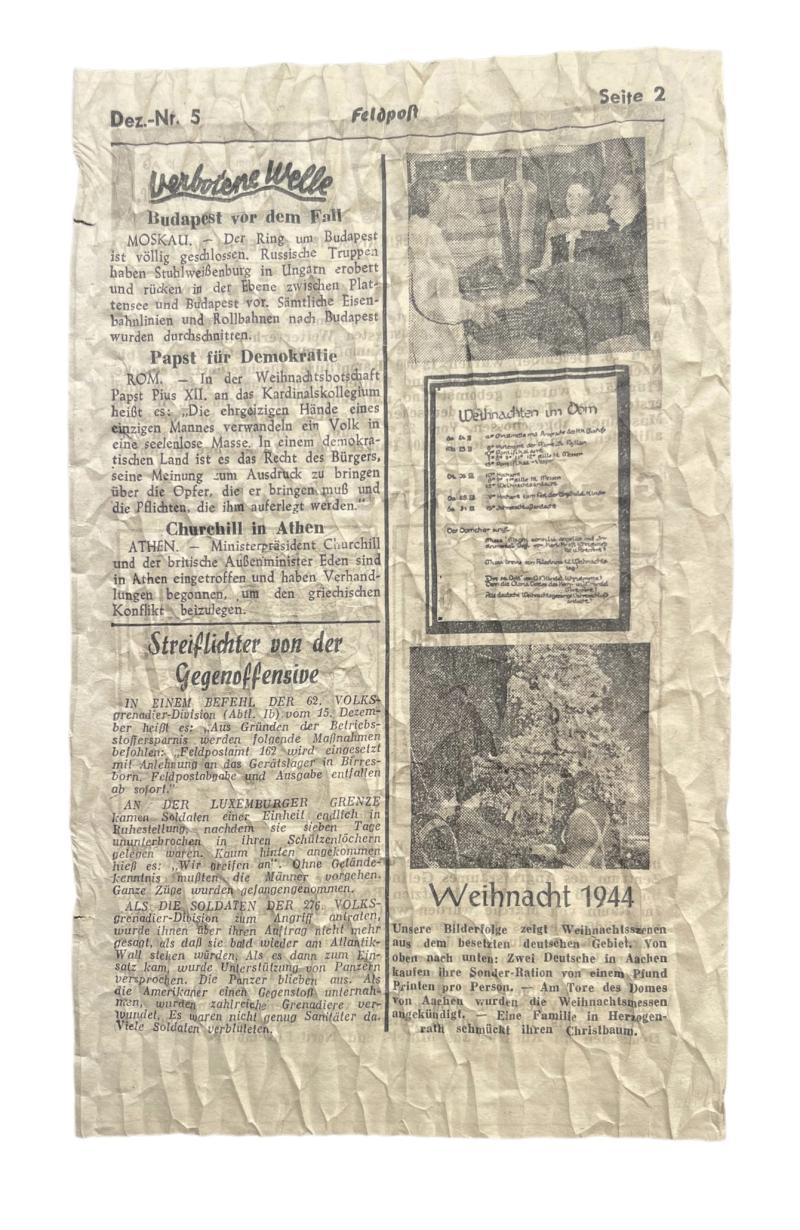 Dez.-Nr. 5
Feldpost
Seite 2
Verbotene Welle
Budapest vor dem Fall
MOSKAU. — Der Ring um Budapest
ist völlig geschlossen. Russische Truppen
haben Stuhlweißenburg in Ungarn erobert
und rücken in der Ebene zwischen Plat-
tensee und Budapest vor. Sämtliche Eisen-
bahnlinien und Rollbahnen nach Budapest
wurden durchschnitten.
Papst für Demokratie
ROM. — In der Weihnachtsbotschaft
Papst Pius XII. an das Kardinalskollegium
heißt es: „Die ehrgeizigen Hände eines
einzigen Mannes verwandeln ein Volk in
eine seelenlose Masse. In einem demokra-
tischen Land ist es das Recht des Bürgers,
seine Meinung zum Ausdruck zu bringen
über die Opfer, die er bringen muß und
die Pflichten, die ihm auferlegt werden."
Churchill in Athen
ATHEN. — Ministerpräsident Churchill
und der britische Außenminister Eden sind
in Athen eingetroffen und haben Verhand-
lungen begonnen, um den griechischen
Konflikt beizulegen.
Streiflichter von der
Gegenoffensive
IN EINEM BEFEHL DER 62. VOLKS-
grenadier-Division (Abtl. Ib) vom 15. Dezem-
ber heißt es: „Aus Gründen der Betriebs-
stoffersparnis werden folgende Maßnahmen
befohlen: „Feldpostamt 162 wird eingesetzt
mit Anlehnung an das Gerätslager in Birres-
born. Feldpostabgabe und Ausgabe entfallen
ab sofort."
AN DER LUXEMBURGER GRENZE
kamen Soldaten einer Einheit endlich in
Ruhestellung, nachdem sie sieben Tage
ununterbrochen in ihren Schützenlöchern
gelegen waren. Kaum hinten angekommen
hieß es: „Wir greifen an". Ohne Gelände-
kenntnis mußten die Männer vorgehen.
Ganze Züge wurden gefangengenommen.
ALS DIE SOLDATEN DER 276. VOLKS-
grenadier-Division zum Angriff antraten,
wurde ihnen über ihren Auftrag nicht mehr
gesagt, als daß sie bald wieder am Atlantik-
Wall stehen würden. Als es dann zum Ein-
satz kam, wurde Unterstützung von Panzern
versprochen. Die Panzer blieben aus. Als
die Amerikaner einen Gegenstoß unternah-
men, wurden zahlreiche Grenadiere ver-
wundet. Es waren nicht genug Sanitäter da.
Viele Soldaten verbluteten.
Weihnachten im Dom
Der Domchor singt
Weihnacht 1944
Unsere Bilderfolge zeigt Weihnachtsszenen
aus dem besetzten deutschen Gebiet. Von
oben nach unten: Zwei Deutsche in Aachen
kaufen ihre Sonder-Ration von einem Pfund
Printen pro Person. — Am Tore des Domes
von Aachen wurden die Weihnachtsmessen
angekündigt. — Eine Familie in Herzogen-
rath schmückt ihren Christbaum.